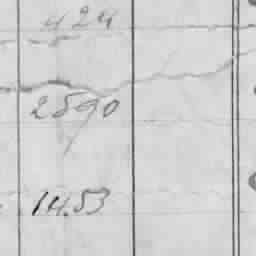 424
2590
14.53